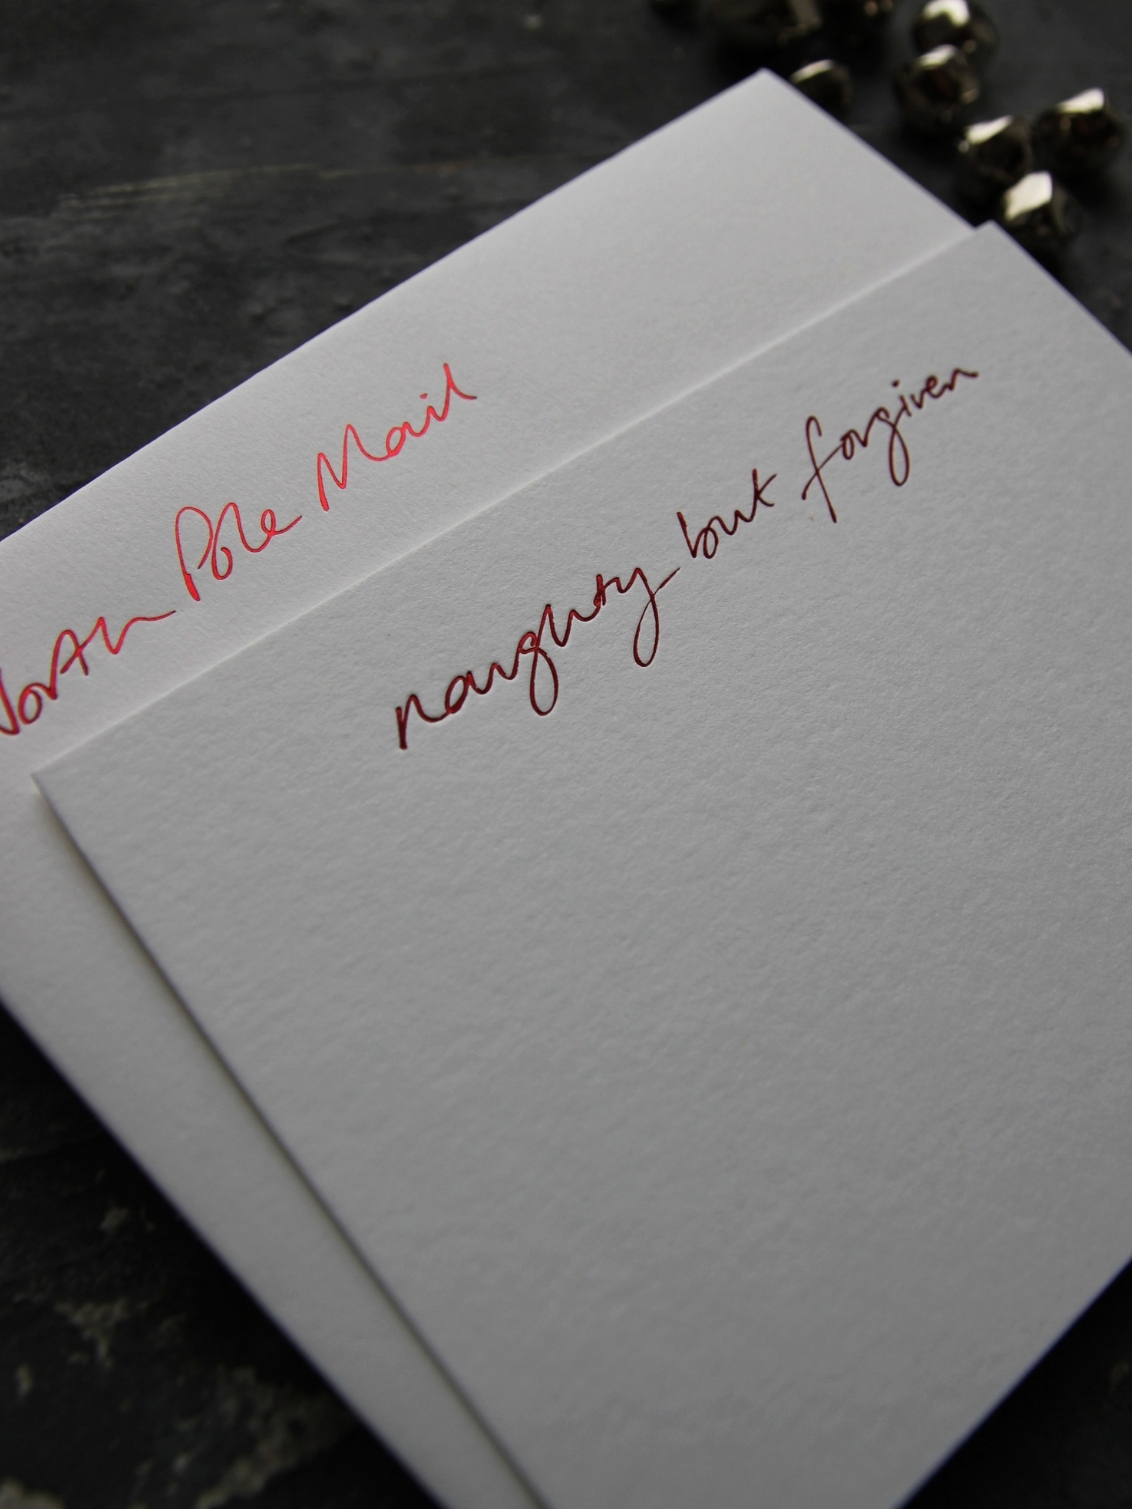 North Pole Mail
naughty but forgiven